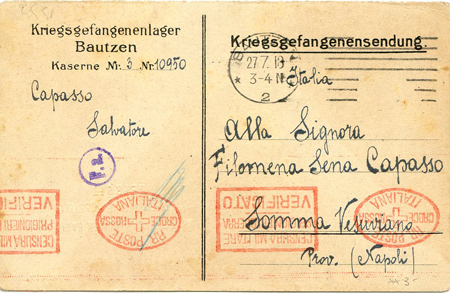 Kriegsgefangenenlager
Bautzen
Kaserne Nr. 3 Nr. 10950
Capasso
Salvatore
F.a.
CENSURA MIL
PRIGIONIERI
VERIFI
RR POSTE
ITALIANA
CROCE ROSSA
Kriegsgefangenensendung.
27.7.18
3-4 N
2
Italia
Alla Signora
Filomena Sena Capasso
Somma Vesuviano
Prov. (Napoli)
CENSURA MILITARE
VERIFICATO
RR POSTE
ITALIANA
CROCE ROSSA